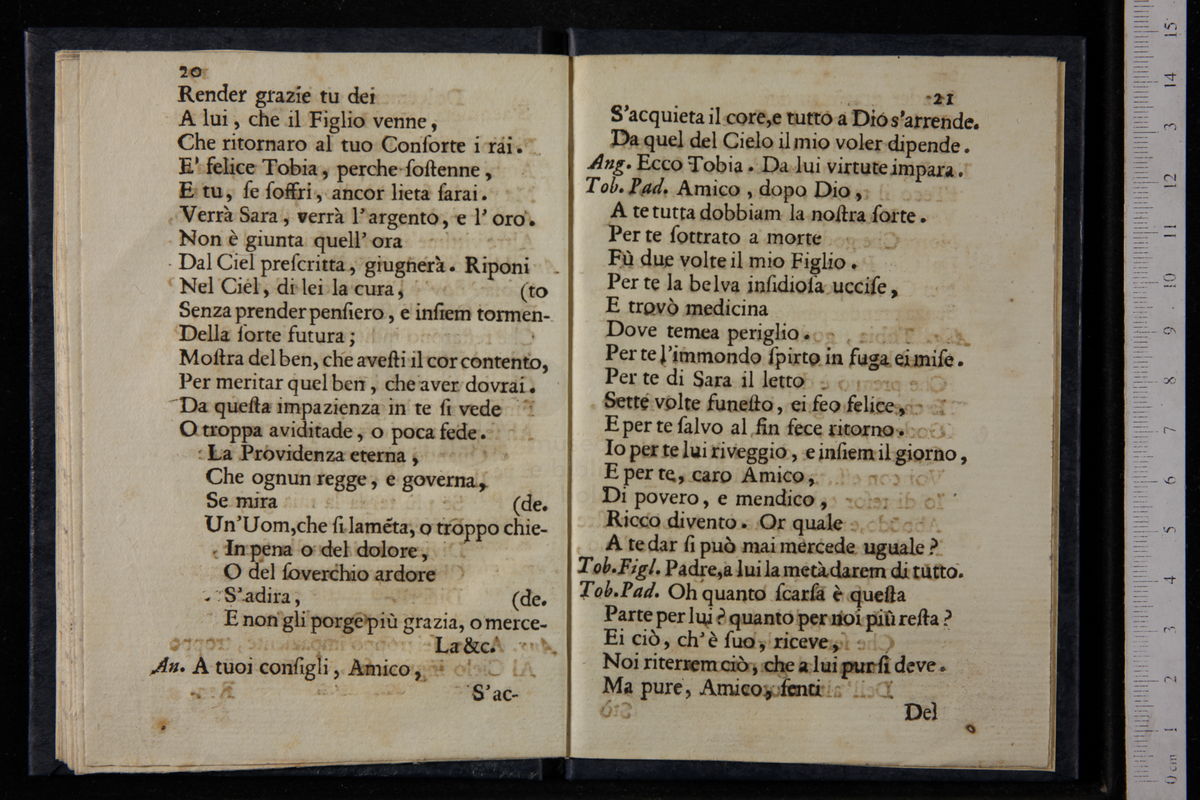 20
Render grazie tu dei
A lui, che il Figlio venne,
Che ritornaro al tuo Conſorte i rai.
E' felice Tobia, perche ſoſtenne,
E tu, ſe ſoffri, ancor lieta ſarai.
Verrà Sara, verrà l'argento, e l'oro.
Non è giunta quell' ora
Dal Ciel preſcritta, giugnerà. Riponi
Nel Ciel, di lei la cura, (to
Senza prender penſiero, e inſiem tormen-
Della ſorte futura;
Moſtra del ben, che aveſti il cor contento,
Per meritar quel ben, che aver dovrai.
Da queſta impazienza in te ſi vede
O troppa aviditade, o poca fede.
La Providenza eterna,
Che ognun regge, e governa,
Se mira (de.
Un'Uom,che ſi lamẽta, o troppo chie-
In pena o del dolore,
O del ſoverchio ardore
S'adira, (de.
E non gli porge più grazia, o merce-
La &c.
An. A tuoi conſigli, Amico,
S'ac-
21
S'acquieta il core,e tutto a Dio s'arrende.
Da quel del Cielo il mio voler dipende.
Ang. Ecco Tobia. Da lui virtute impara.
Tob. Pad. Amico, dopo Dio,
A te tutta dobbiam la noſtra ſorte.
Per te ſottrato a morte
Fù due volte il mio Figlio.
Per te la belva inſidioſa ucciſe,
E trovò medicina
Dove temea periglio.
Per te l'immondo ſpirto in fuga ei miſe.
Per te di Sara il letto
Sette volte funeſto, ei feo felice,
E per te ſalvo al fin fece ritorno.
Io per te lui riveggio, e inſiem il giorno,
E per te, caro Amico,
Di povero, e mendico,
Ricco divento. Or quale
A te dar ſi può mai mercede uguale?
Tob.Figl. Padre,a lui la metà darem di tutto.
Tob.Pad. Oh quanto ſcarſa è queſta
Parte per lui? quanto per noi più reſta?
Ei ciò, ch'è ſuo, riceve,
Noi riterrem ciò, che a lui pur ſi deve.
Ma pure, Amico, ſenti
Del